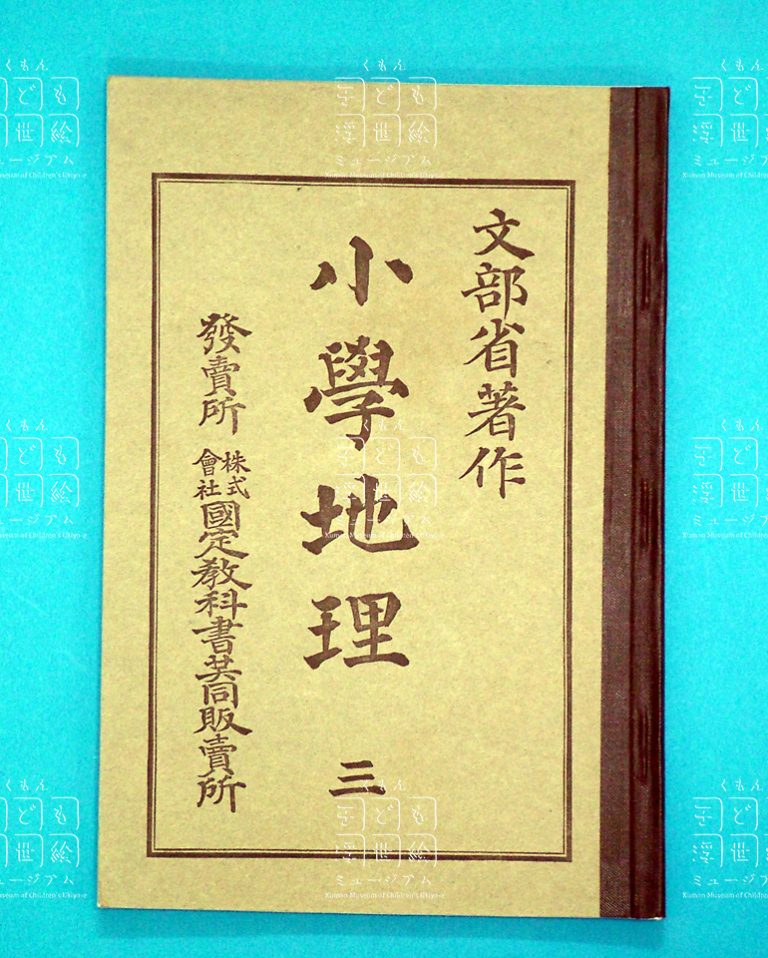 文部省著作
小學地理 三
發賣所 株式會社 國定敎科書共同販賣所
くもん
子ども
浮世絵
ミュージアム
Kumon Museum of Children's Ukiyo-e